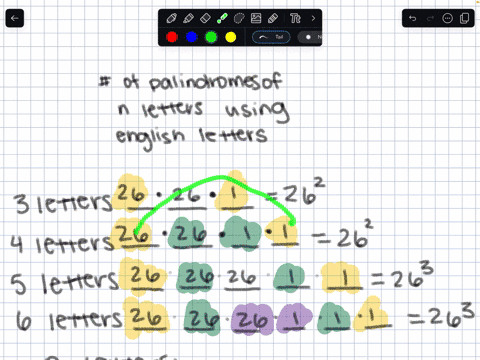 # of palindromes of
n letters using
english letters
3 letters 26 · 26 · 1 = 26²
4 letters 26 · 26 · 1 · 1 = 26²
5 letters 26 · 26 · 26 · 1 · 1 = 26³
6 letters 26 · 26 · 26 · 1 · 1 · 1 = 26³